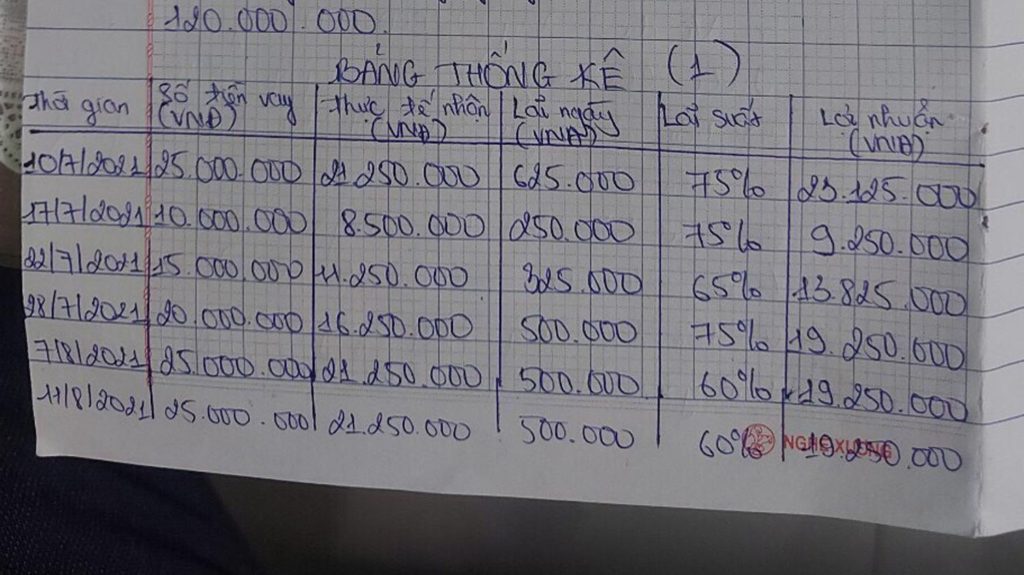 120.000.000.
BẢNG THỐNG KÊ (1)
Thời gian Số tiền vay (VNĐ) Thực tế nhận (VNĐ) Lãi ngày (VNĐ) Lãi suất Lợi nhuận (VNĐ)
10/7/2021 25.000.000 21.250.000 625.000 75% 23.125.000
17/7/2021 10.000.000 8.500.000 250.000 75% 9.250.000
22/7/2021 15.000.000 11.250.000 325.000 65% 13.825.000
28/7/2021 20.000.000 16.250.000 500.000 75% 19.250.000
7/8/2021 25.000.000 21.250.000 500.000 60% 19.250.000
17/8/2021 25.000.000 21.250.000 500.000 60% 19.250.000